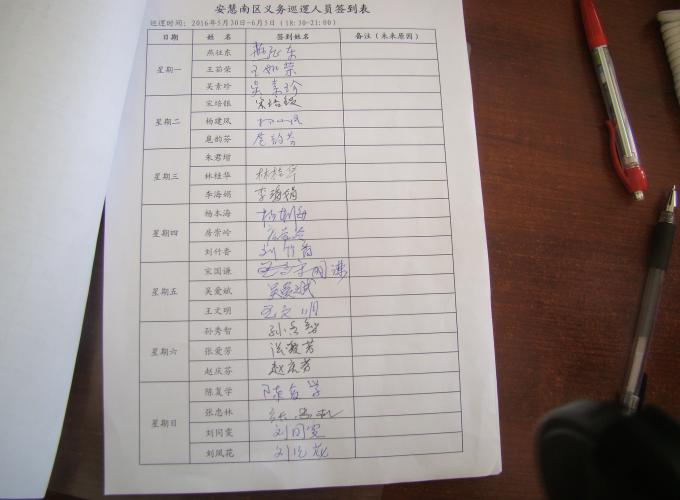 安慧南区义务巡逻人员签到表
巡逻时间：2016年5月30日-6月5日（18:30-21:00）
日期 姓 名 签到姓名 备注（未来原因）
星期一
燕征东 燕征东
王茹荣 王茹荣
吴素珍 吴素珍
星期二
宋培银 宋培银
杨建凤
扈韵芬 扈韵芬
星期三
朱君增
林桂华 林桂华
李海娟 李海娟
星期四
杨本海 杨本海
房崇岭 房崇岭
刘竹香 刘竹香
星期五
宋国谦
吴爱斌 吴爱斌
王文明 王文明
星期六
孙秀智 孙秀智
张爱芳 张爱芳
赵庆芬 赵庆芬
星期日
陈复学 陈复学
张忠林
刘同雯 刘同雯
刘凤花 刘凤花